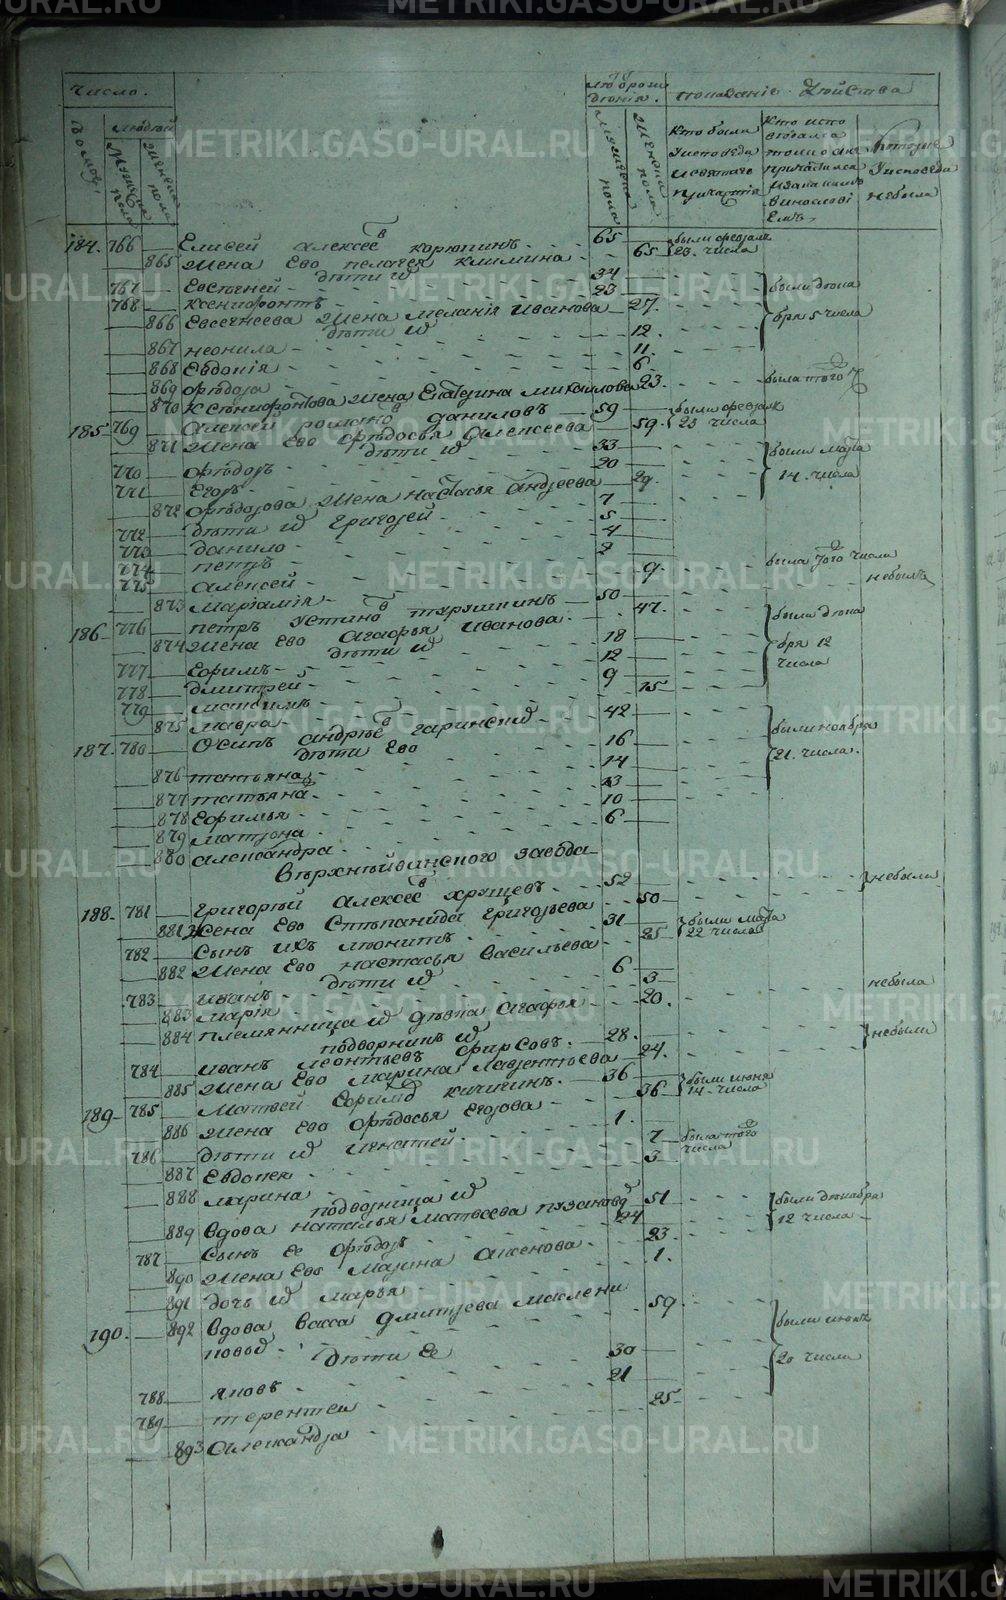 число.
людей
домовъ
мужеска пола
женска пола
показаніе действа
мужеска пола
женска пола
кто были у исповеди и святаго причастія
которые у исповеди небыли
184. 766 Елисей алексеевъ корюпинъ 65 были февраля
865 жена Ево пелагея климина 65 23. числа
дѣти их
767 Евстегней 34 были декабря 5 числа
768 ксенифонтъ 23
866 Евсегнеева жена меланія иванова 27.
дѣти их
867 неонила 12
868 Евдокія 11
869 фѣдора 6
870 Ксенифонтова жена Екатерина михаилова 23 была того
185 769 алексей романовъ даниловъ 59 были февраля
871 жена ево фѣдосья алексеева 59. 23 числа
дѣти их
770 фѣдоръ 33 были марта 14. числа
771 Егоръ 20
872 фѣдорова жена настасья андреева 29
772 дѣти их григорей 7
773 данило 5
774 петръ 4
775 алексей 2
873 маріамія 9. была того числа
186 776 петръ устиновъ трушкинъ 50 небылъ
874 жена ево агафья иванова 47. были декабря 12 числа
дѣти их
777 Ефимъ 18
778 дмитрей 12
779 9
875 мавра 15
187. 780 Осипъ андреевъ гаринской 42 были ноября 21. числа.
дѣти Ево
876 татьяна 16
877 татьяна 14
878 Ефимья 13
879 матрона 10
880 александра 6
Верхнейвинского завода
188 781 григорей алексеевъ хрущевъ 52 небыли
881 жена Ево степанида григорьева 50
782 сынъ ихъ леонитъ 31 были марта
882 жена ево настасья васильева 25 22 числа
дѣти их
783 иванъ 6
883 марія 3 небыла
884 племянница их дѣвка агафья 20.
подворникъ их
784 иванъ леонтьевъ фирсовъ 28. небыли
885 жена Ево марина лаврентьева 24.
189 785 матвей Ефимов кичигинъ. 36 были июня
886 жена Ево фѣдосья Егорова 36 14. числа
786 дѣти их игнатей 1.
887 Евдокея 7 была того числа
888 марина 3
подворница их
889 вдова наталья матвеева пузанова 51 были декабря 12 числа
787 сынъ ее фѣдоръ 24
890 жена Ево марина аксенова 23.
891 дочь их марья 1.
190. 892 вдова васса дмитрева маслени 59. были июня 20 числа
дѣти Ее
788 яковъ 30
789 терентей 21
893 александра 25
METRIKI.GASO-URAL.RU